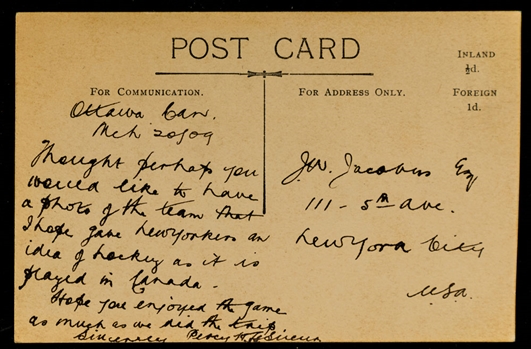 POST CARD
INLAND
½d.
FOREIGN
1d.
FOR COMMUNICATION.
Ottawa Can.
Mch 20/09
Thought perhaps you
would like to have
a photo of the team that
I hope gave New Yorkers an
idea of hockey as it is
played in Canada.
Hope you enjoyed the game
as much as we did the trip
Sincerely Percy H.
FOR ADDRESS ONLY.
J.W. Jacobus Esq
111 - 5th Ave.
New York City
U.S.a.